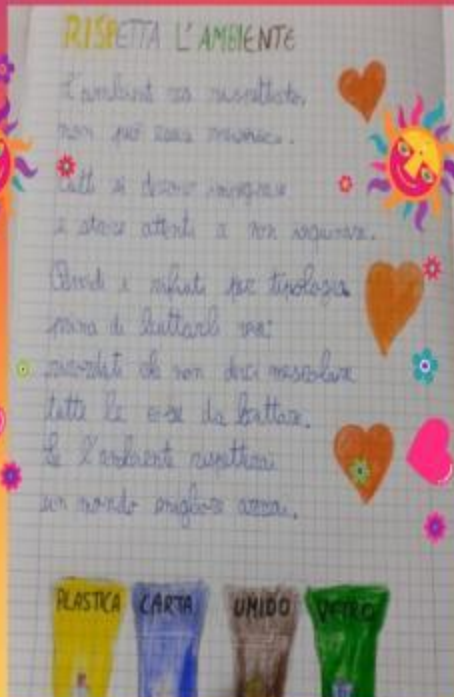 RISPETTA L'AMBIENTE
L'ambiente va rispettato,
non può
Tutti si devono impegnare
e stare attenti a non inquinare.
Dividi i rifiuti per tipologia
prima di buttarli via:
ricordati che non devi mescolare
tutte le cose da buttare.
Se l'ambiente rispetterai
un mondo migliore avrai.
PLASTICA CARTA UMIDO VETRO